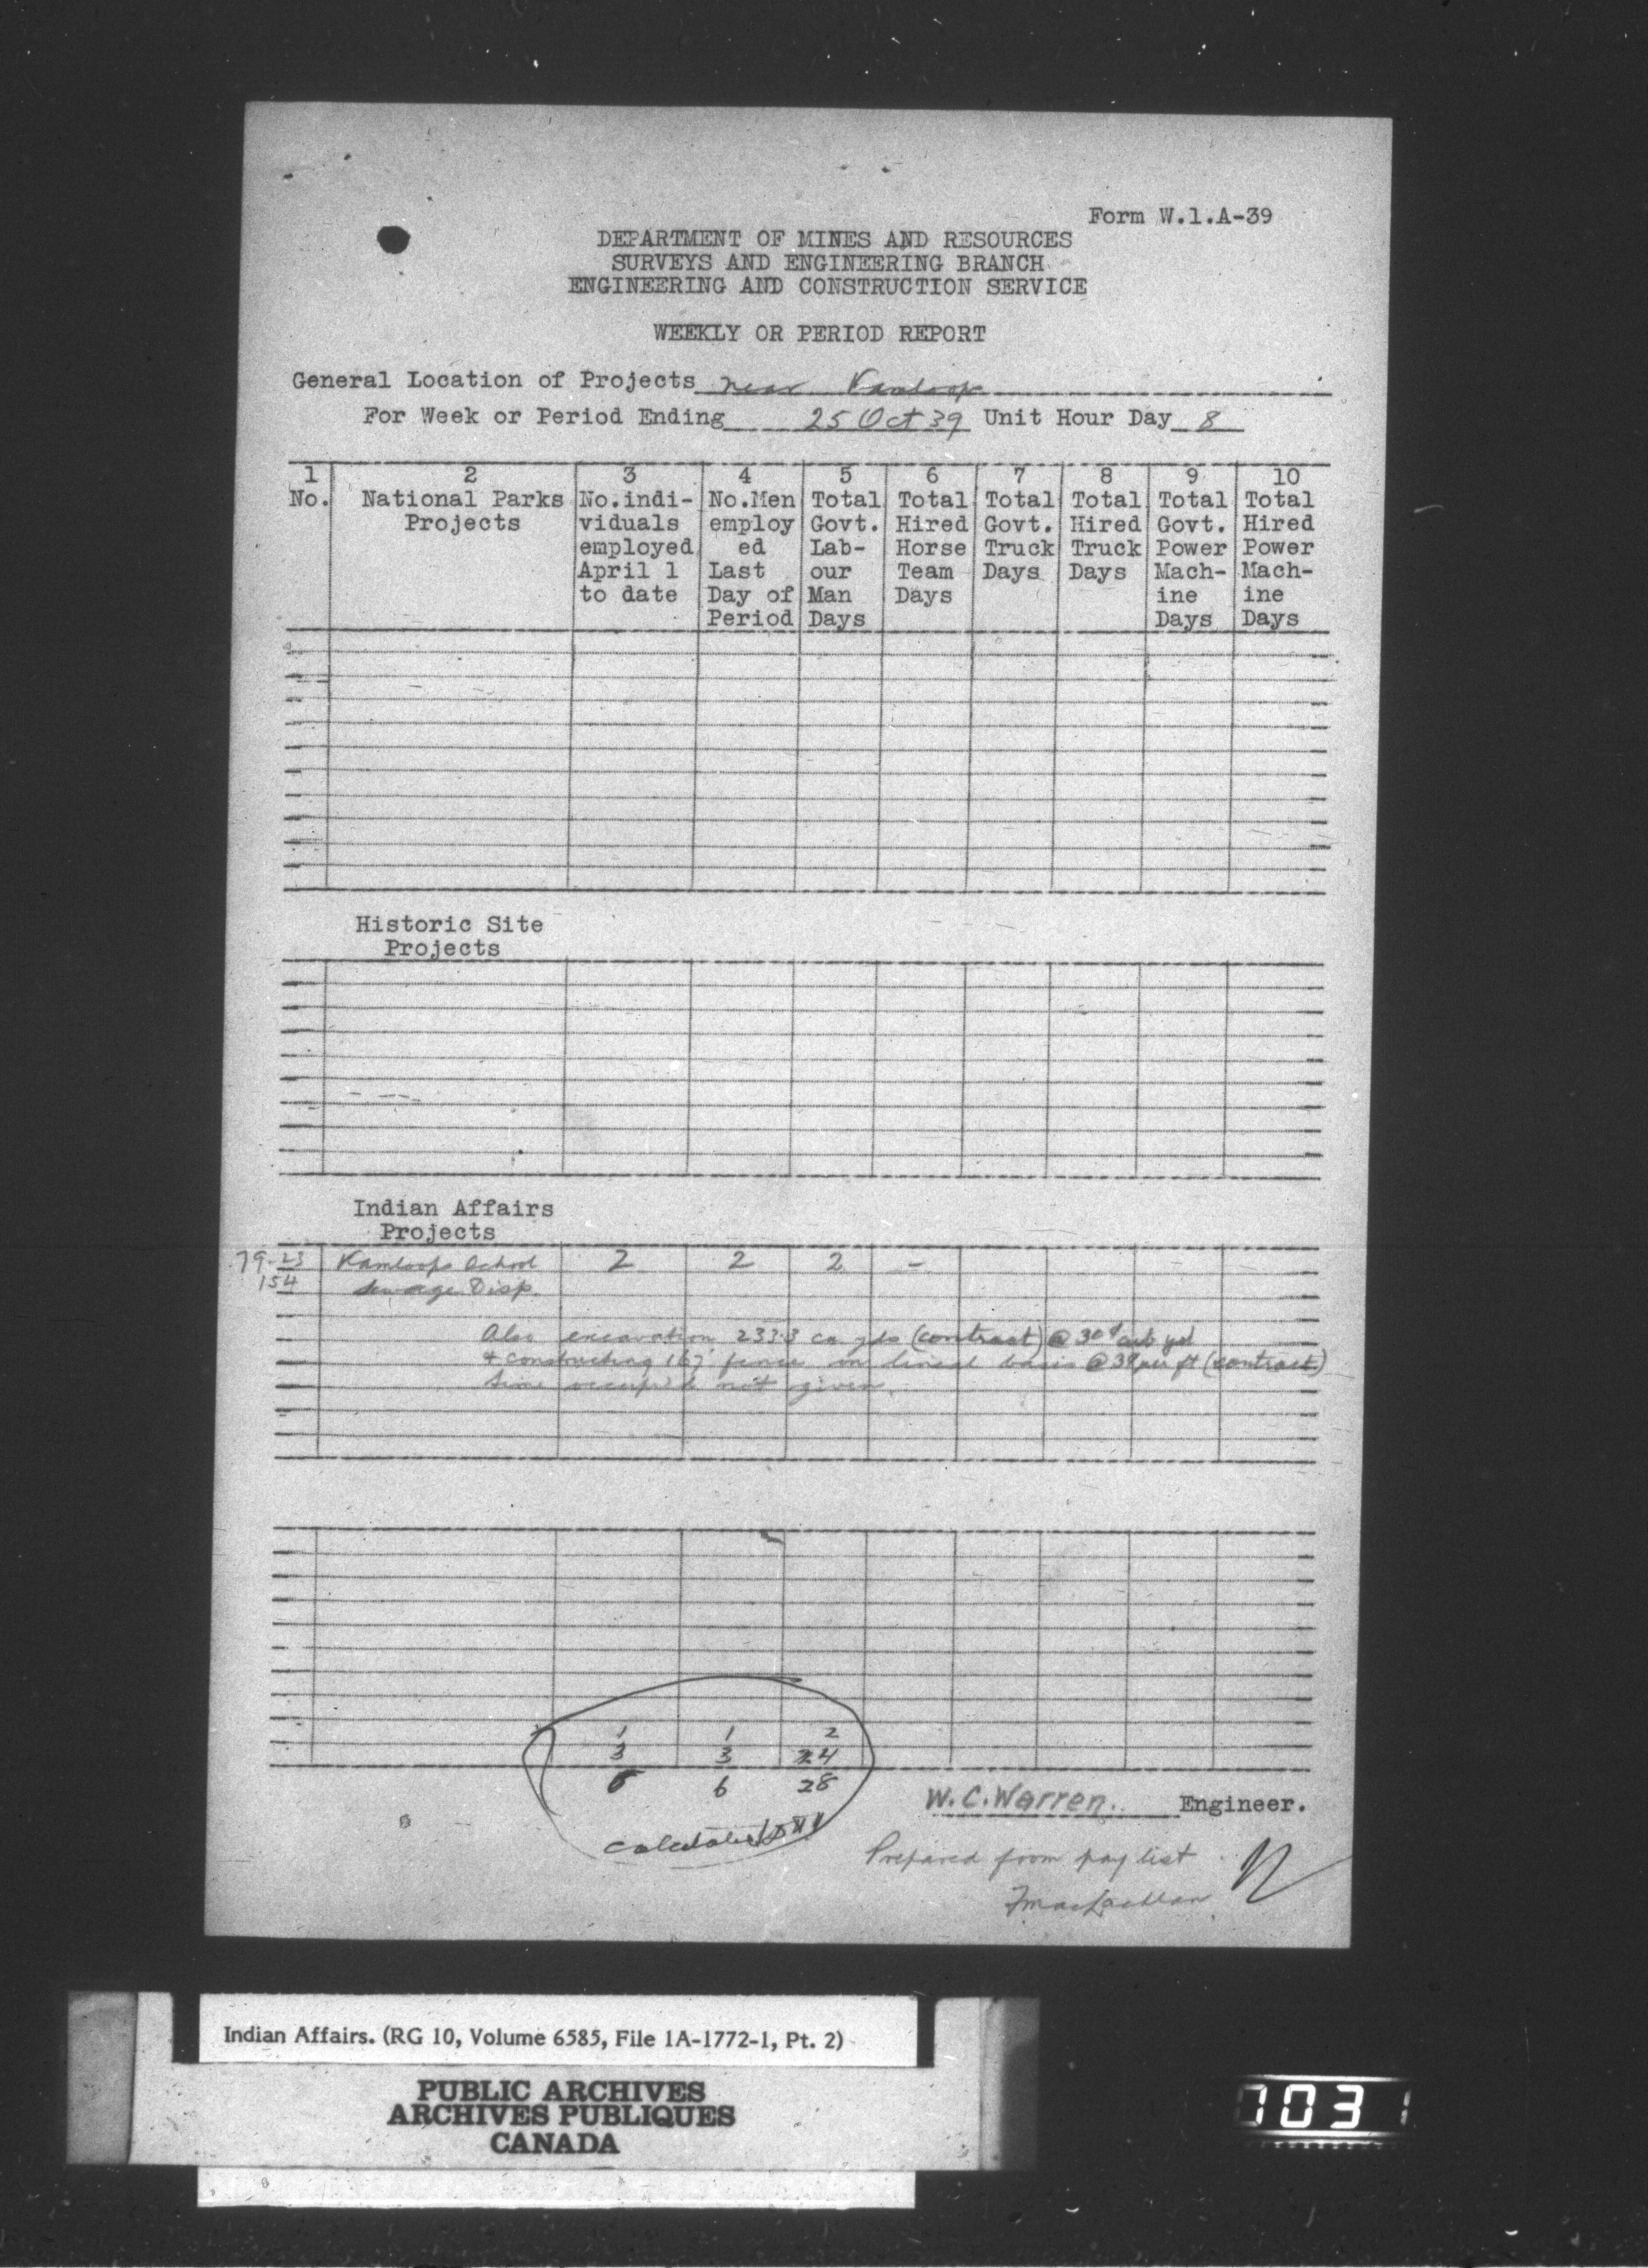 Form W.1.A-39
DEPARTMENT OF MINES AND RESOURCES
SURVEYS AND ENGINEERING BRANCH
ENGINEERING AND CONSTRUCTION SERVICE
WEEKLY OR PERIOD REPORT
General Location of Projects near Kamloops
For Week or Period Ending 25 Oct 39 Unit Hour Day 8
1 2 3 4 5 6 7 8 9 10
No. National Parks No.indi- No.Men Total Total Total Total Total Total
Projects viduals employ Govt. Hired Govt. Hired Govt. Hired
employed ed Lab- Horse Truck Truck Power Power
April 1 Last our Team Days Days Mach- Mach-
to date Day of Man Days ine ine
Period Days Days Days
Historic Site
Projects
Indian Affairs
Projects
79-23 Kamloops School 2 2 2 -
154 Sewage Disp.
Also excavation 233.3 cu yds (contract) @ 30¢ cub yd
+ constructing 167' fence on lineal basis @ per ft (contract)
time occup'd not given.
1 1 2
3 3 24
6 28
W.C.Warren. Engineer.
Prepared from pay list
FmacLachlan
Indian Affairs. (RG 10, Volume 6585, File 1A-1772-1, Pt. 2)
PUBLIC ARCHIVES
ARCHIVES PUBLIQUES
CANADA
1031